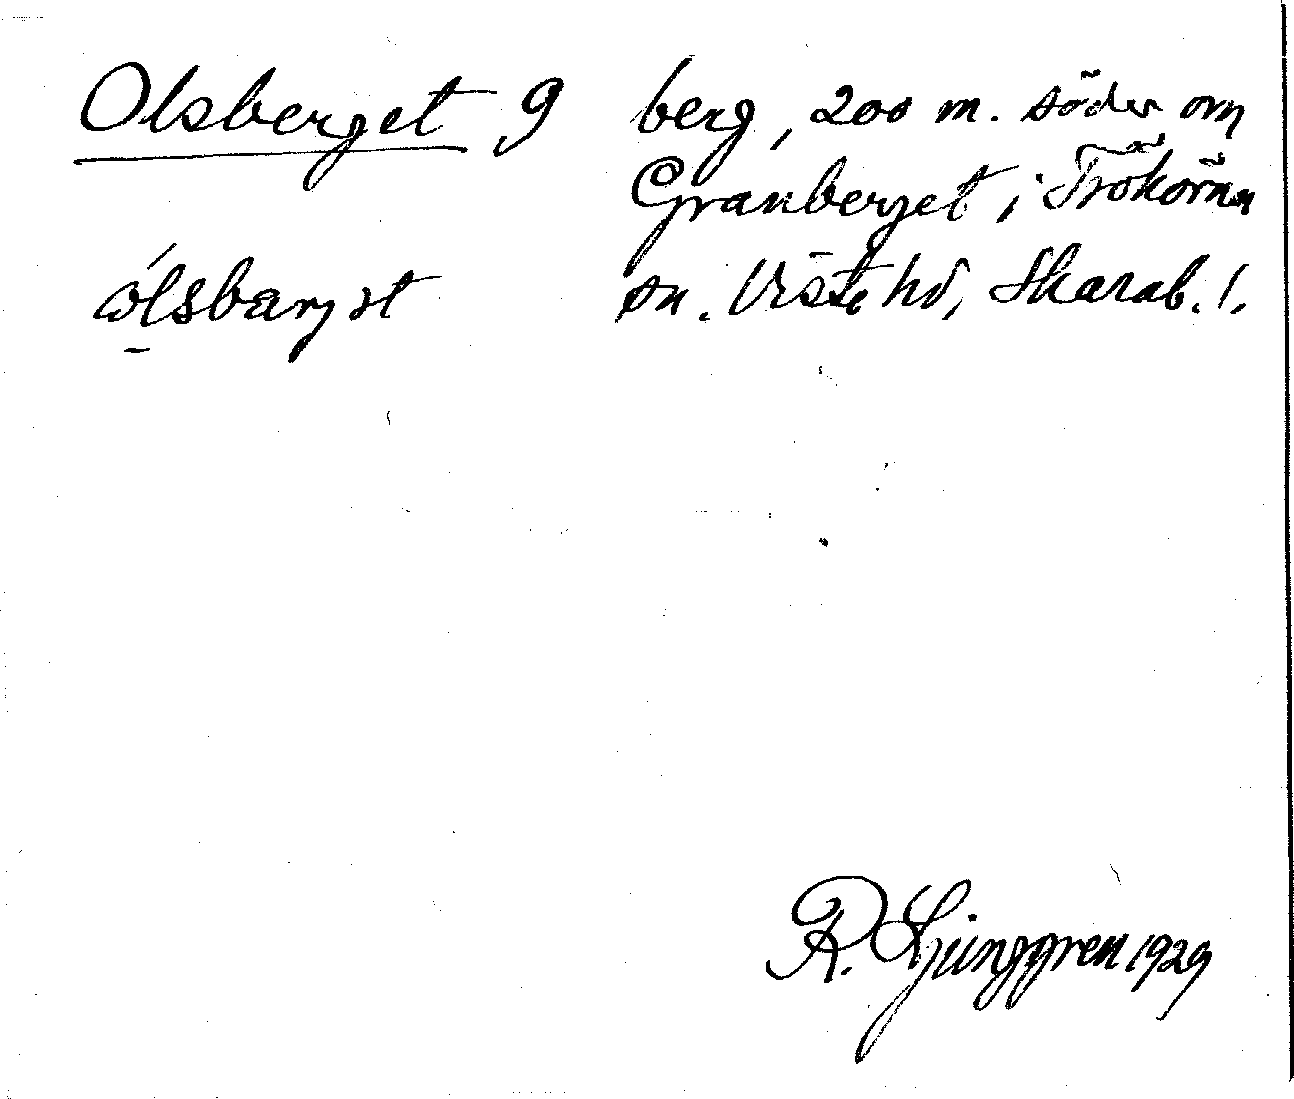 Olsberget 9 berg, 200 m. söder om
Granberget i Trökörna
ólsbærjət sn. Viste hd, Skarab. l.
R. Ljunggren 1929